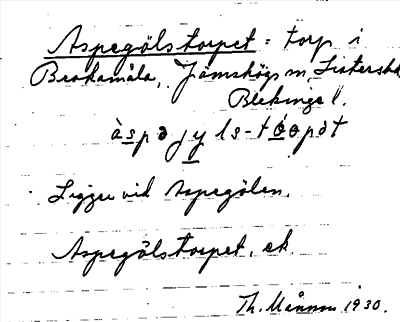 Aspegölstorpet = torp i
Brokamåla, Jämshögs sn, Listers hd
Blekinge l.
àspəjy ls-tóopət
Ligger vid Aspegölen.
Aspegölstorpet, ek.
Th. Månsson 1930.